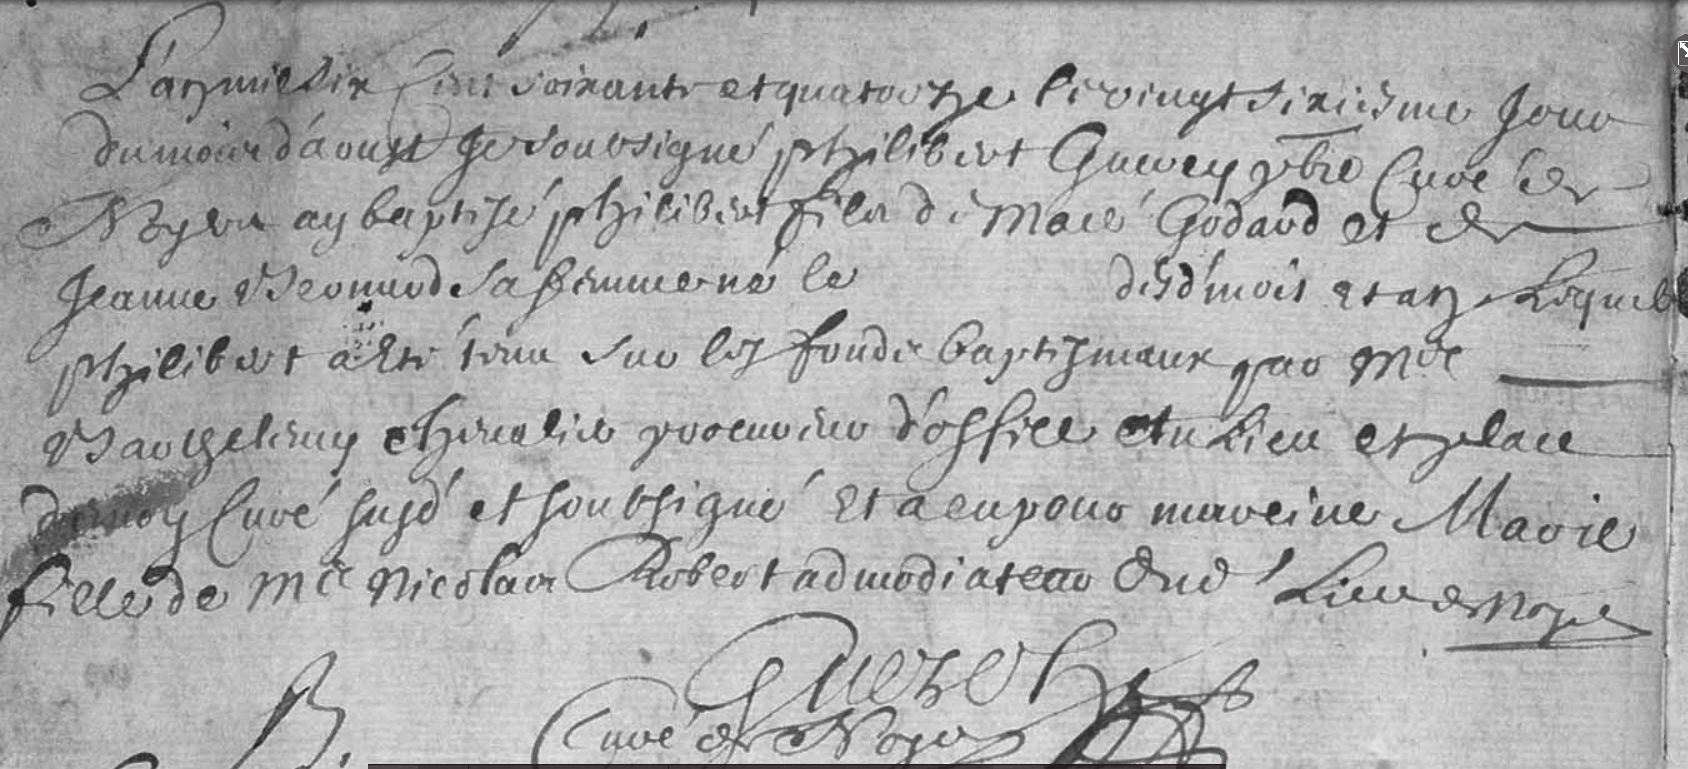 L'an mil six cent soixante et quatorze le vingt sixiesme Jour
du mois d'aoust Je soubsigné philibert ptbre Curé de
ay baptisé philibert fils de Macé Godard et de
Jeanne sa femme né le desd' mois et an Lequel
philibert a esté tenu sur les fonds baptismaux par Me
Barthelemy chevalier procureur d'office au Lieu et place
de moy Curé susd' et soubsigné Et a eu pour mareine Marie
fille de Me Nicolas Robert admodiateur dud' Lieu de
Curé de